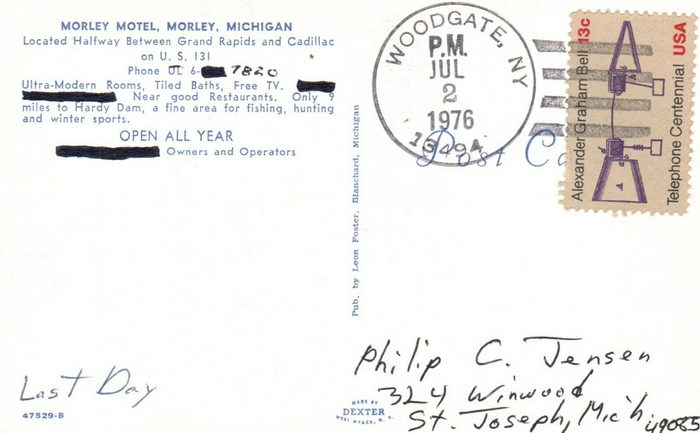 MORLEY MOTEL, MORLEY, MICHIGAN
Located Halfway Between Grand Rapids and Cadillac
on U. S. 131
Phone UL 6- 7820
Ultra-Modern Rooms, Tiled Baths, Free TV.
Near good Restaurants. Only 9
miles to Hardy Dam, a fine area for fishing, hunting
and winter sports.
OPEN ALL YEAR
Owners and Operators
Last Day
47529-B
Pub. by Leon Foster, Blanchard, Michigan
MADE BY
DEXTER
WEST NYACK, N. Y.
WOODGATE, NY
P.M.
JUL
2
1976
13494
Post Ca
Alexander Graham Bell 13c
Telephone Centennial USA
Philip C. Jensen
324 Winwood
St. Joseph, Mich 49085